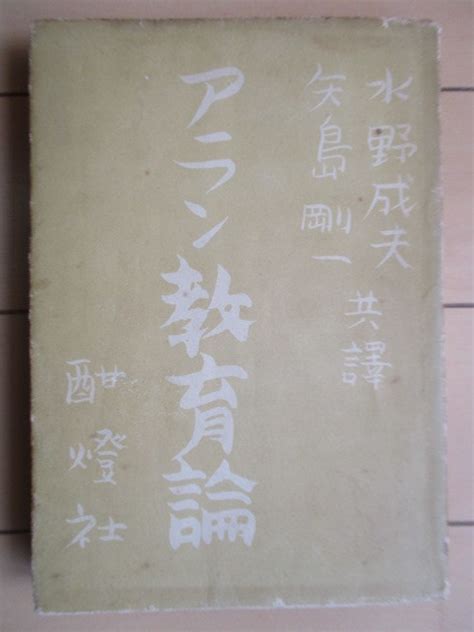 水野成夫
矢島剛一 共譯
アラン教育論
酣燈社